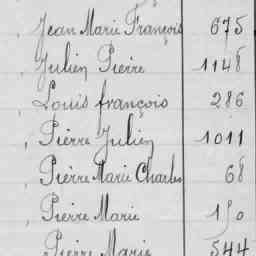 Jean Marie François 675
Julien Pierre 1148
Louis françois 286
Pierre Julien 1011
Pierre Marie Charles 68
Pierre Marie 150
Pierre Marie 544